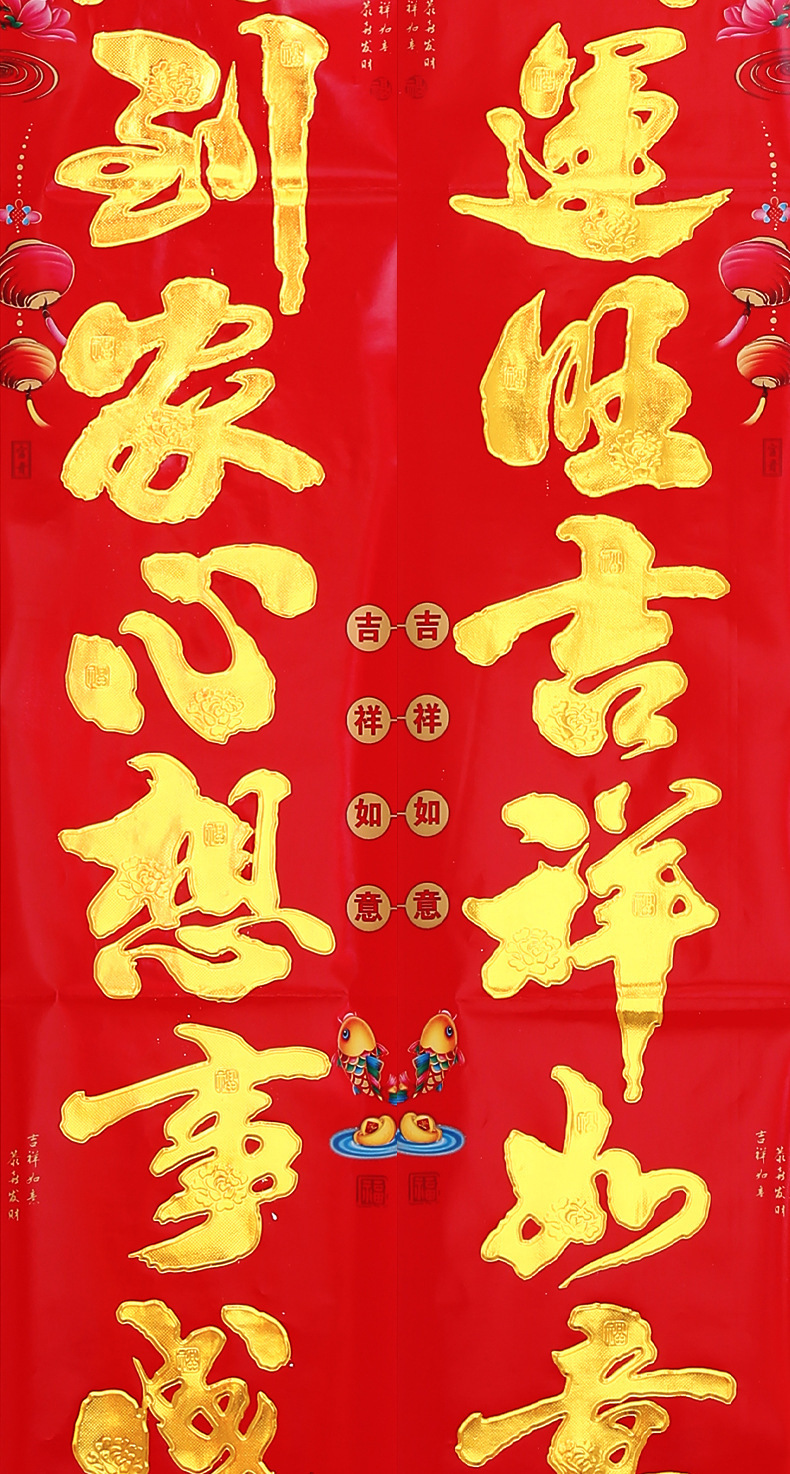 運旺吉祥如意
到家心想事成
吉祥如意
吉祥如意
吉祥如意
恭喜发财
吉祥如意
恭喜发财
富贵
富贵
福
福